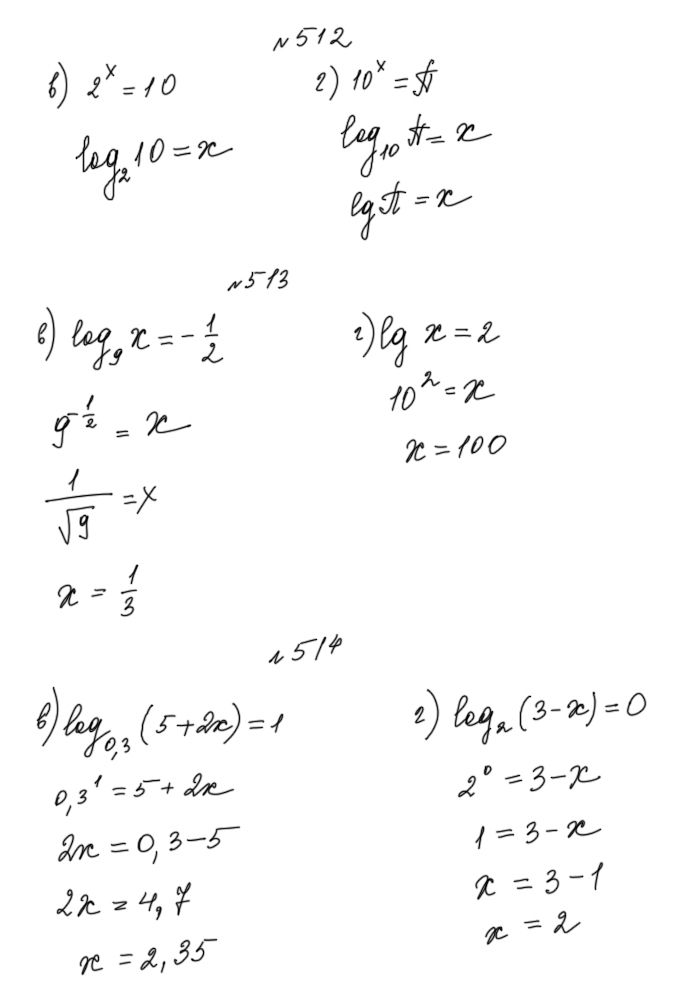 №512
в) 2^x = 10
log_2 10 = x
г) 10^x = π
log_10 π = x
lg π = x
№513
в) log_9 x = -1/2
9^(-1/2) = x
1/√9 = x
x = 1/3
г) lg x = 2
10^2 = x
x = 100
№514
в) log_0,3 (5+2x) = 1
0,3^1 = 5+2x
2x = 0,3-5
2x = 4,7
x = 2,35
г) log_2 (3-x) = 0
2^0 = 3-x
1 = 3-x
x = 3-1
x = 2